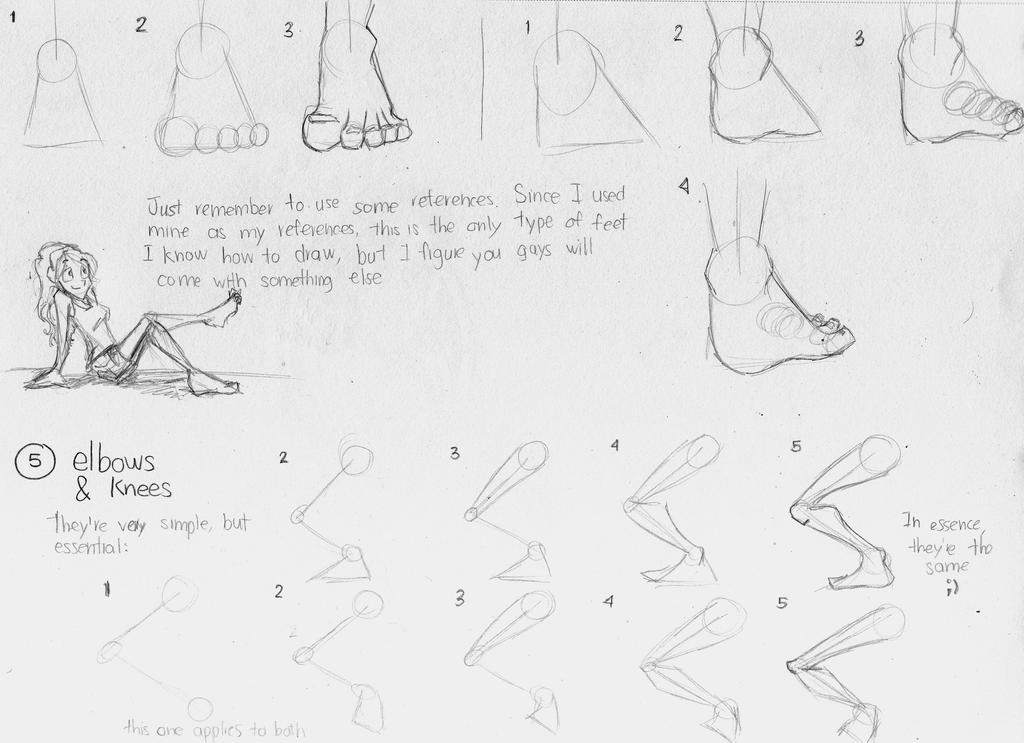 1 2 3 1 2 3
Just remember to use some references. Since I used
mine as my references, this is the only type of feet
I know how to draw, but I figure you gays will
come with something else
4
5 elbows
& Knees
They're very simple, but
essential:
2 3 4 5
In essence,
they're the
same
;)
1 2 3 4 5
2
this one applies to both